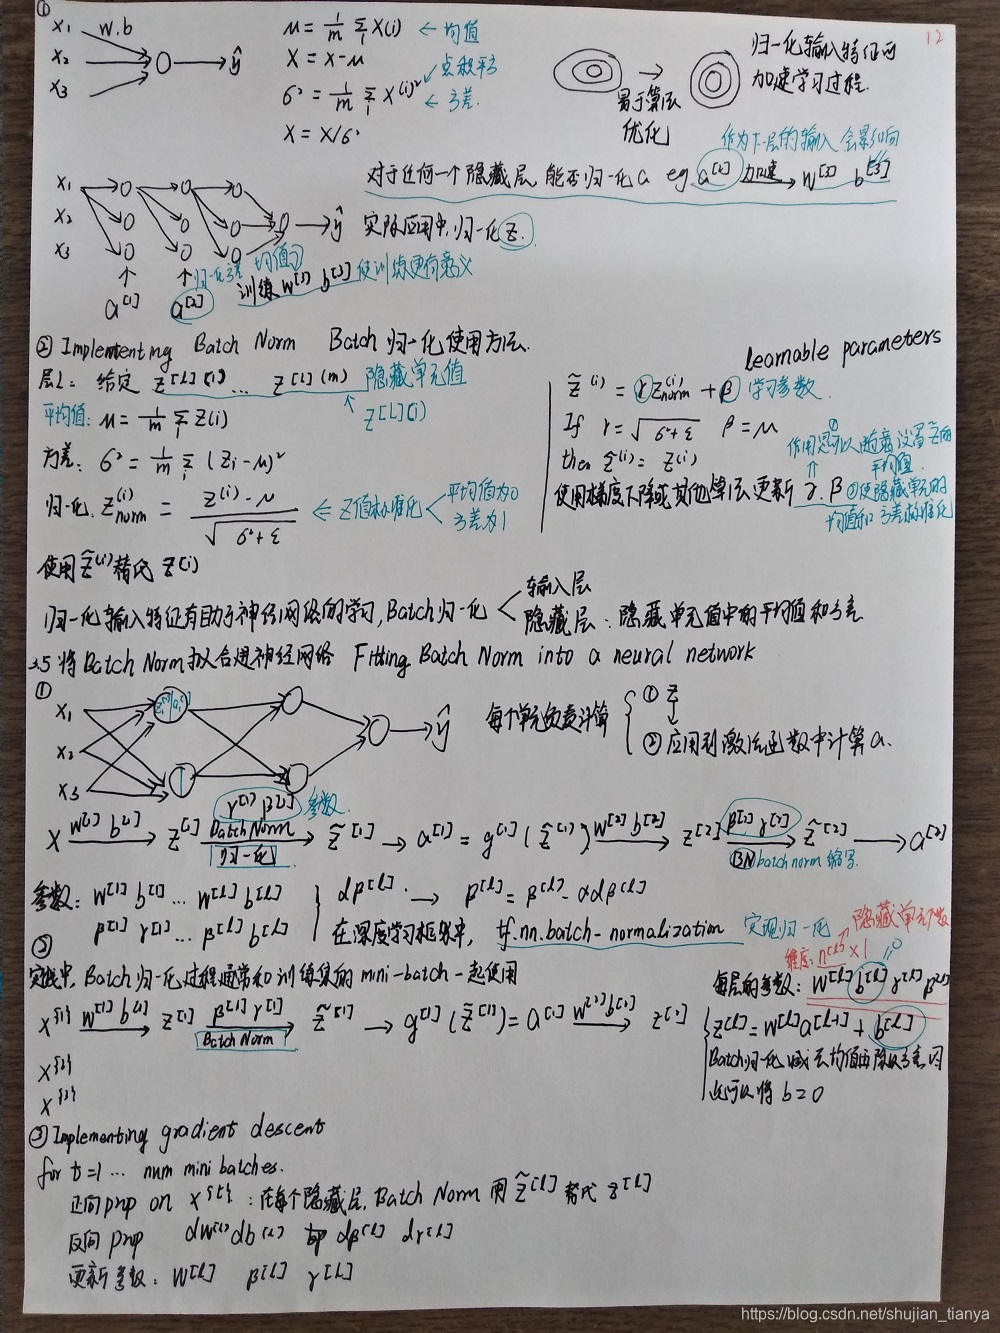 ①
12
x₁ w.b
x₂
x₃
ŷ
μ = 1/m Σᵢ X(i) ← 均值
X = X-μ
点积平方
σ² = 1/m Σᵢ X⁽ⁱ⁾² ← 方差.
X = X/σ²
易于算法
优化
归一化输入特征可
加速学习过程.
作为下一层的输入 会影响
对于任何一个隐藏层,能否归一化a eg a[2] 加速→ w[3] b[3]
x₁
x₂
x₃
ŷ
实际应用中,归一化z.
归一化方差 均值
a[1] a[2] 训练w[3] b[3] 使训练更有意义
② Implementing Batch Norm Batch 归一化使用方法.
层L: 给定 z[l](i)... z[l](m) 隐藏单元值
z[l](i)
平均值: μ = 1/m Σᵢ z(i)
方差: σ² = 1/m Σᵢ (zᵢ-μ)²
归一化. z(i)norm = (z(i)-μ)/√(σ²+ε) ⇐ z值标准化 < 平均值为0
方差为1
使用z̃(i)替代 z(i)
learnable parameters
z̃(i) = γz(i)norm + β 学习参数
If γ = √(σ²+ε) β = μ
then z̃(i) = z(i)
作用①可以随意设置z̃的
平均值.
使用梯度下降或其他算法更新 γ.β ②使隐藏单元的
均值和方差标准化
归一化输入特征有助于神经网络的学习,Batch归一化 < 输入层
隐藏层: 隐藏单元值中的平均值和方差
3.5 将Batch Norm拟合进神经网络 Fitting Batch Norm into a neural network
①
x₁
x₂
x₃
ŷ
每个单元负责计算 { ① z
② 应用到激活函数中计算a.
γ[1] β[1] 参数.
X w[1] b[1]→ z[1] Batch Norm→ z̃[1] → a[1] = g[1](z̃[1]) w[2] b[2]→ z[2] β[2] γ[2]→ z̃[2] → a[2]
归一化
BN batch norm 缩写.
参数: w[1] b[1] ... w[L] b[L]
β[1] γ[1] ... β[L] b[L]
dβ[l] → β[l] = β[l] - αdβ[l]
在深度学习框架中, tf.nn.batch-normalization 实现归一化
②
实践中, Batch 归一化过程通常和训练集的 mini-batch一起使用
X{1} w[1] b[1]→ z[1] β[1] γ[1]→ z̃[1] → g[1](z̃[1]) = a[1] w[2] b[2]→ z[2]
Batch Norm
X{2}
X{3}
隐藏单元个数
维度: n[l] × 1
=0
每层的参数: w[l] b[l] γ[l] β[l]
z[l] = w[l]a[l-1] + b[l]
Batch归一化 减去均值再除以方差,因
此可以将 b=0
③ Implementing gradient descent
for t=1 ... num mini batches.
正向prop on X{t} : 在每个隐藏层, Batch Norm 用 z̃[l] 替代 z[l]
反向prop dw[l] db[l] dβ[l] dγ[l]
更新参数: w[l] β[l] γ[l]
https://blog.csdn.net/shujian_tianya